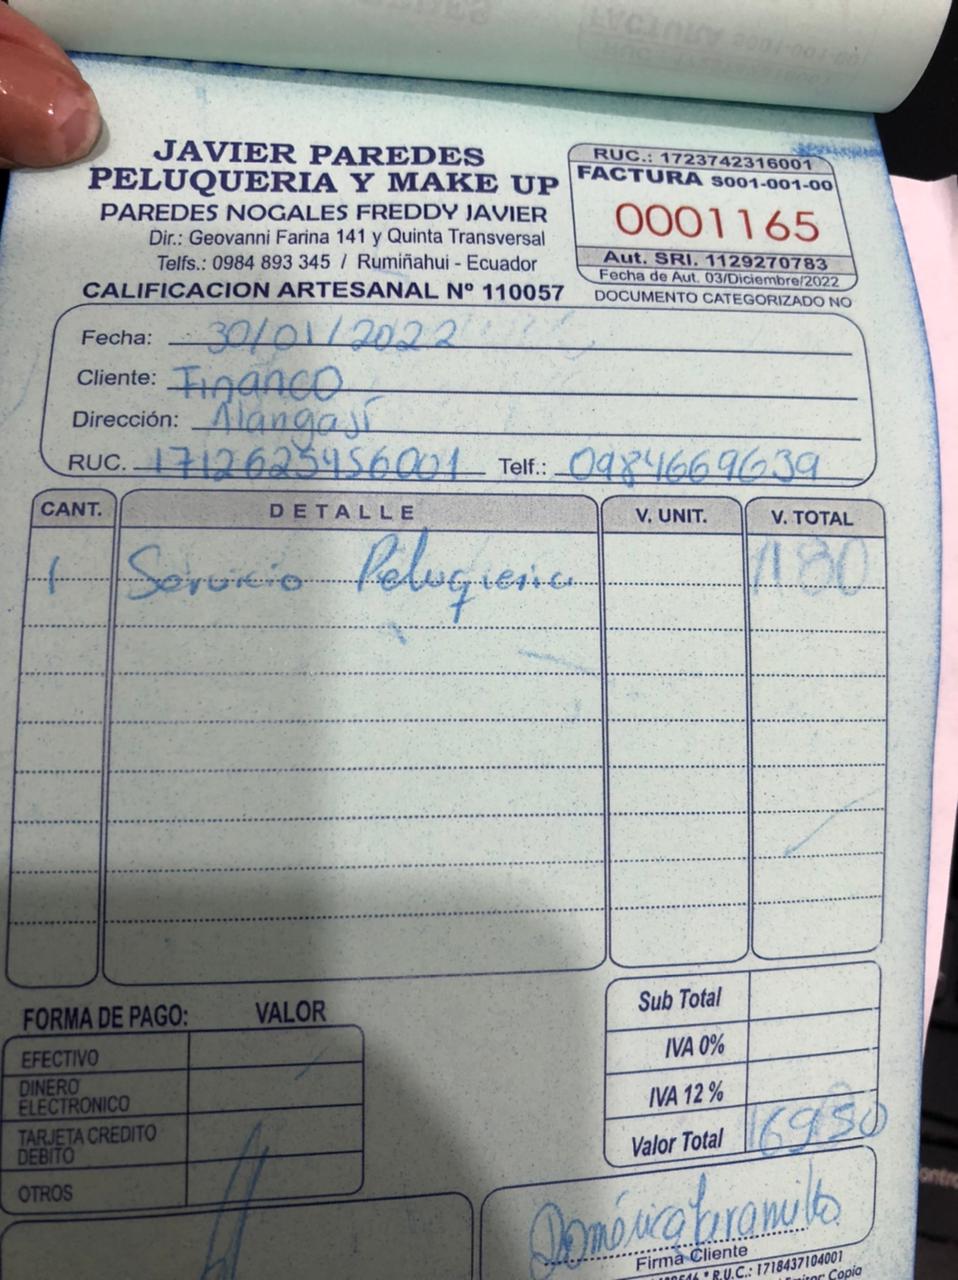 JAVIER PAREDES
PELUQUERIA Y MAKE UP
PAREDES NOGALES FREDDY JAVIER
Dir.: Geovanni Farina 141 y Quinta Transversal
Telfs.: 0984 893 345 / Rumiñahui - Ecuador
CALIFICACION ARTESANAL Nº 110057
RUC.: 1723742316001
FACTURA S001-001-00
0001165
Aut. SRI. 1129270783
Fecha de Aut. 03/Diciembre/2022
DOCUMENTO CATEGORIZADO NO
Fecha: 30/01/2022
Cliente: Financo
Dirección: Alangasí
RUC. 1712625456001 Telf.: 0984669639
CANT. DETALLE V. UNIT. V. TOTAL
1 Servicio Peluqueria
Sub Total
IVA 0%
IVA 12 %
Valor Total
FORMA DE PAGO: VALOR
EFECTIVO
DINERO
ELECTRONICO
TARJETA CREDITO
DEBITO
OTROS
Doménica Jaramillo
Firma Cliente
* R.U.C.: 1718437104001
Copia